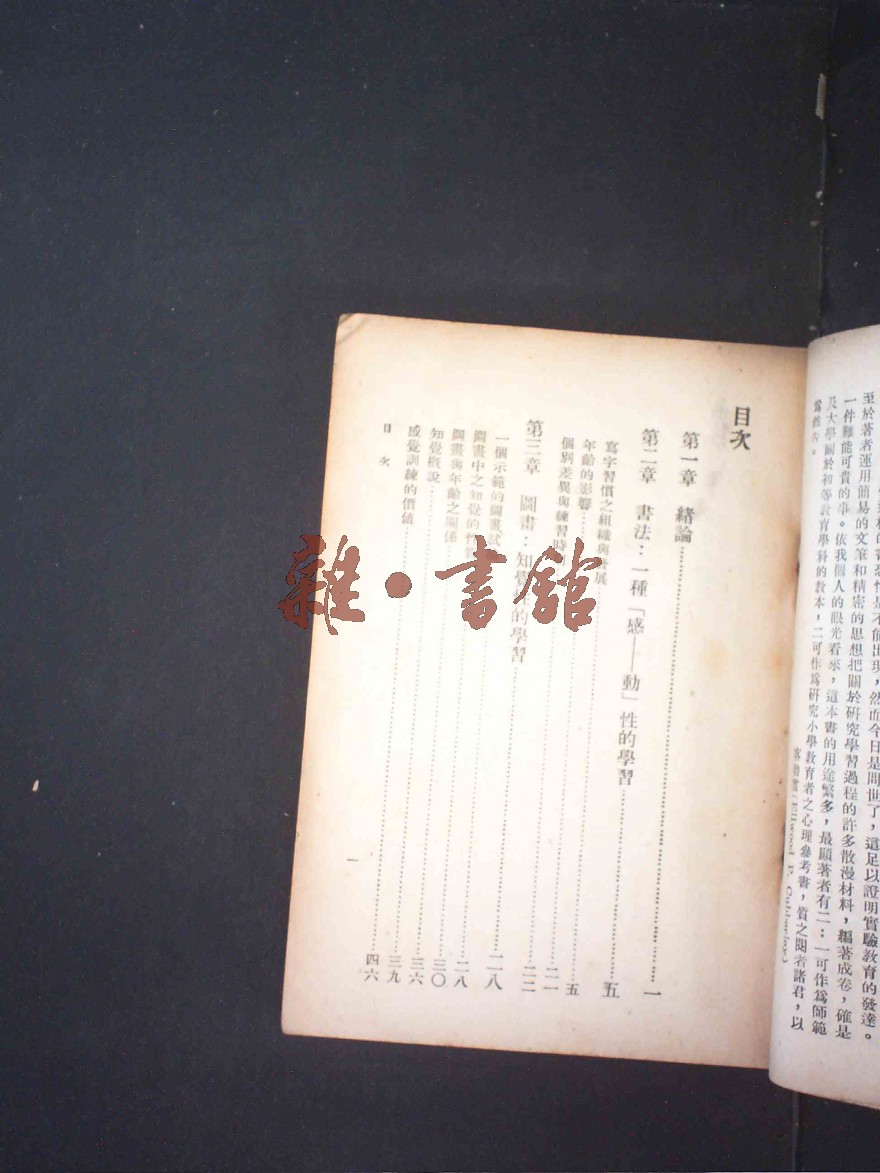 樣的書恐怕是不能出現，然而今日是問世了，這足以證明實驗教育的發達。
至於著者運用簡易的文筆和精密的思想把關於研究學習過程的許多散漫材料，編著成卷，確是
一件難能可貴的事。依我個人的眼光看來，這本書的用途繁多，最顯著者有二：一可作爲師範
及大學關於初等教育學科的教本，二可作爲研究小學教育者之心理參考書，質之閱者諸君，以
爲然否。
(Ellwood P. Cubberley)
目次
第一章 緒論…………一
第二章 書法：一種「感——動」性的學習…………五
寫字習慣之組織與發展…………五
年齡的影響…………二一
個別差異與練習時…………二二
第三章 圖畫：知覺性的學習…………二八
一個示範的圖畫試…………二八
圖畫中之知覺的性…………三〇
圖畫與年齡之關係…………三六
知覺概說…………三九
感覺訓練的價值…………四六
目次
一
雜·書館